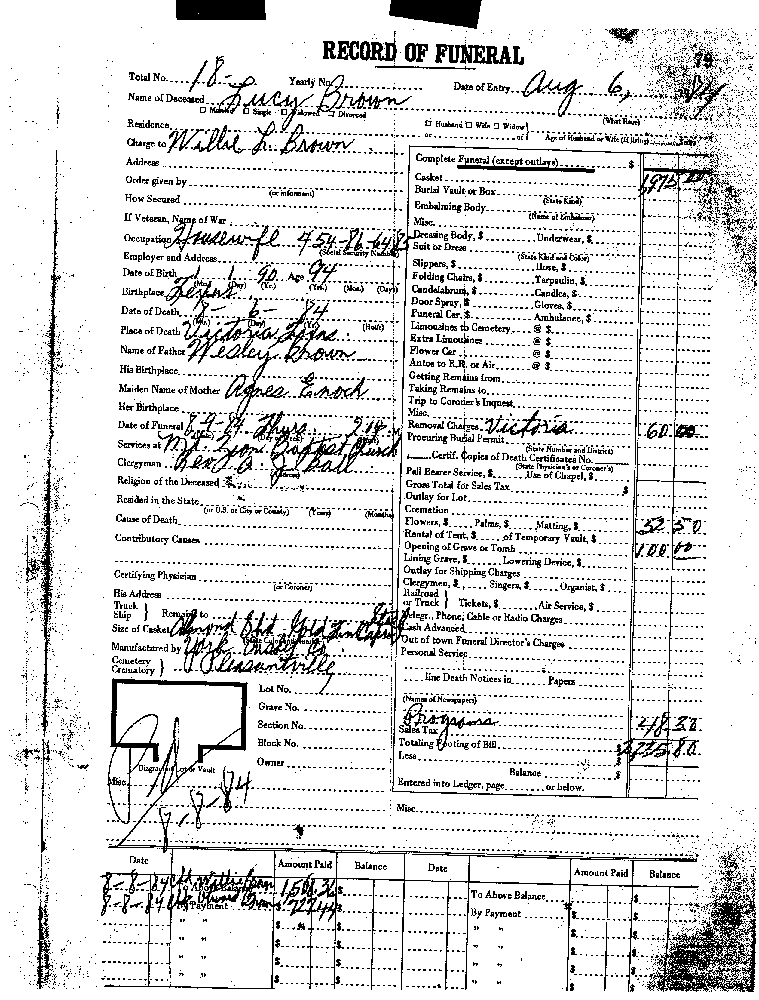 RECORD OF FUNERAL
79
Total No. 18- Yearly No. Date of Entry Aug 6,
Name of Deceased Lucy Brown
Married Single Widowed Divorced
Husband Wife Widow
(What Race)
Residence
or of Age of Husband or Wife (if living) Years
Charge to Willie L. Brown
Address
Order given by
(or informant)
How Secured
If Veteran, Name of War
Occupation Housewife 454-86-6485
(Social Security Number)
Employer and Address
Date of Birth 1 1 90 Age 94
(Mo.) (Day) (Yr.) (Yrs.) (Mos.) (Days)
Birthplace Texas
Date of Death 8- 6- 84
(Mo.) (Day) (Yr.) (Hour)
Place of Death Victoria Texas
Name of Father Wesley Brown
His Birthplace
Maiden Name of Mother Agnes Enoch
Her Birthplace
Date of Funeral 8-9-84 Thurs.
Services at Mt. Zion Baptist Church
Clergyman Rev. Ball
Religion of the Deceased
Resided in the State
(or U.S. or City or County) (Years) (Months)
Cause of Death
Contributory Causes
Certifying Physician
(or Coroner)
His Address
Truck
Ship } Remains to
Size of Casket Almond Shd. Gold
Manufactured by York Casket Co.
Cemetery
Crematory } Pleasantville
Lot No.
Grave No.
Section No.
Block No.
Owner
Diagram of Lot or Vault
Misc.
8-8-84
Complete Funeral (except outlays) $
Casket 1,975 00
Burial Vault or Box
(State Kind)
Embalming Body
(Name of Embalmer)
Misc.
Dressing Body, $ Underwear, $
Suit or Dress
(State Kind and Color)
Slippers, $ Hose, $
Folding Chairs, $ Tarpaulin, $
Candelabrum, $ Candles, $
Door Spray, $ Gloves, $
Funeral Car, $ Ambulance, $
Limousines to Cemetery @ $
Extra Limousines @ $
Flower Car @ $
Autos to R.R. or Air @ $
Getting Remains from
Taking Remains to
Trip to Coroner's Inquest
Misc.
Removal Charges Victoria 60 00
Procuring Burial Permit
(State Number and District)
Certif. Copies of Death Certificates No.
(State Physician's or Coroner's)
Pall Bearer Service, $ Use of Chapel, $
Gross Total for Sales Tax $
Outlay for Lot
Cremation
Flowers, $ Palms, $ Matting, $ 52 50
Rental of Tent, $ of Temporary Vault, $
Opening of Grave or Tomb 100 00
Lining Grave, $ Lowering Device, $
Outlay for Shipping Charges
Clergymen, $ Singers, $ Organist, $
Railroad
or Truck } Tickets, $ Air Service, $
Telegr., Phone, Cable or Radio Charges
Cash Advanced
Out of town Funeral Director's Charges
Personal Service
line Death Notices in Papers
(Names of Newspapers)
Programs
Sales Tax 48.30
Totaling Footing of Bill $2,235.80
Less $
Balance $
Entered into Ledger, page or below.
Misc.
Date Amount Paid Balance Date Amount Paid Balance
8-8-84 To Above Balance $ To Above Balance $
8-8-84 By Payment $ By Payment $
" " $ $ " " $ $
" " $ $ " " $ $
" " $ $ " " $ $
" " $ $ " " $ $